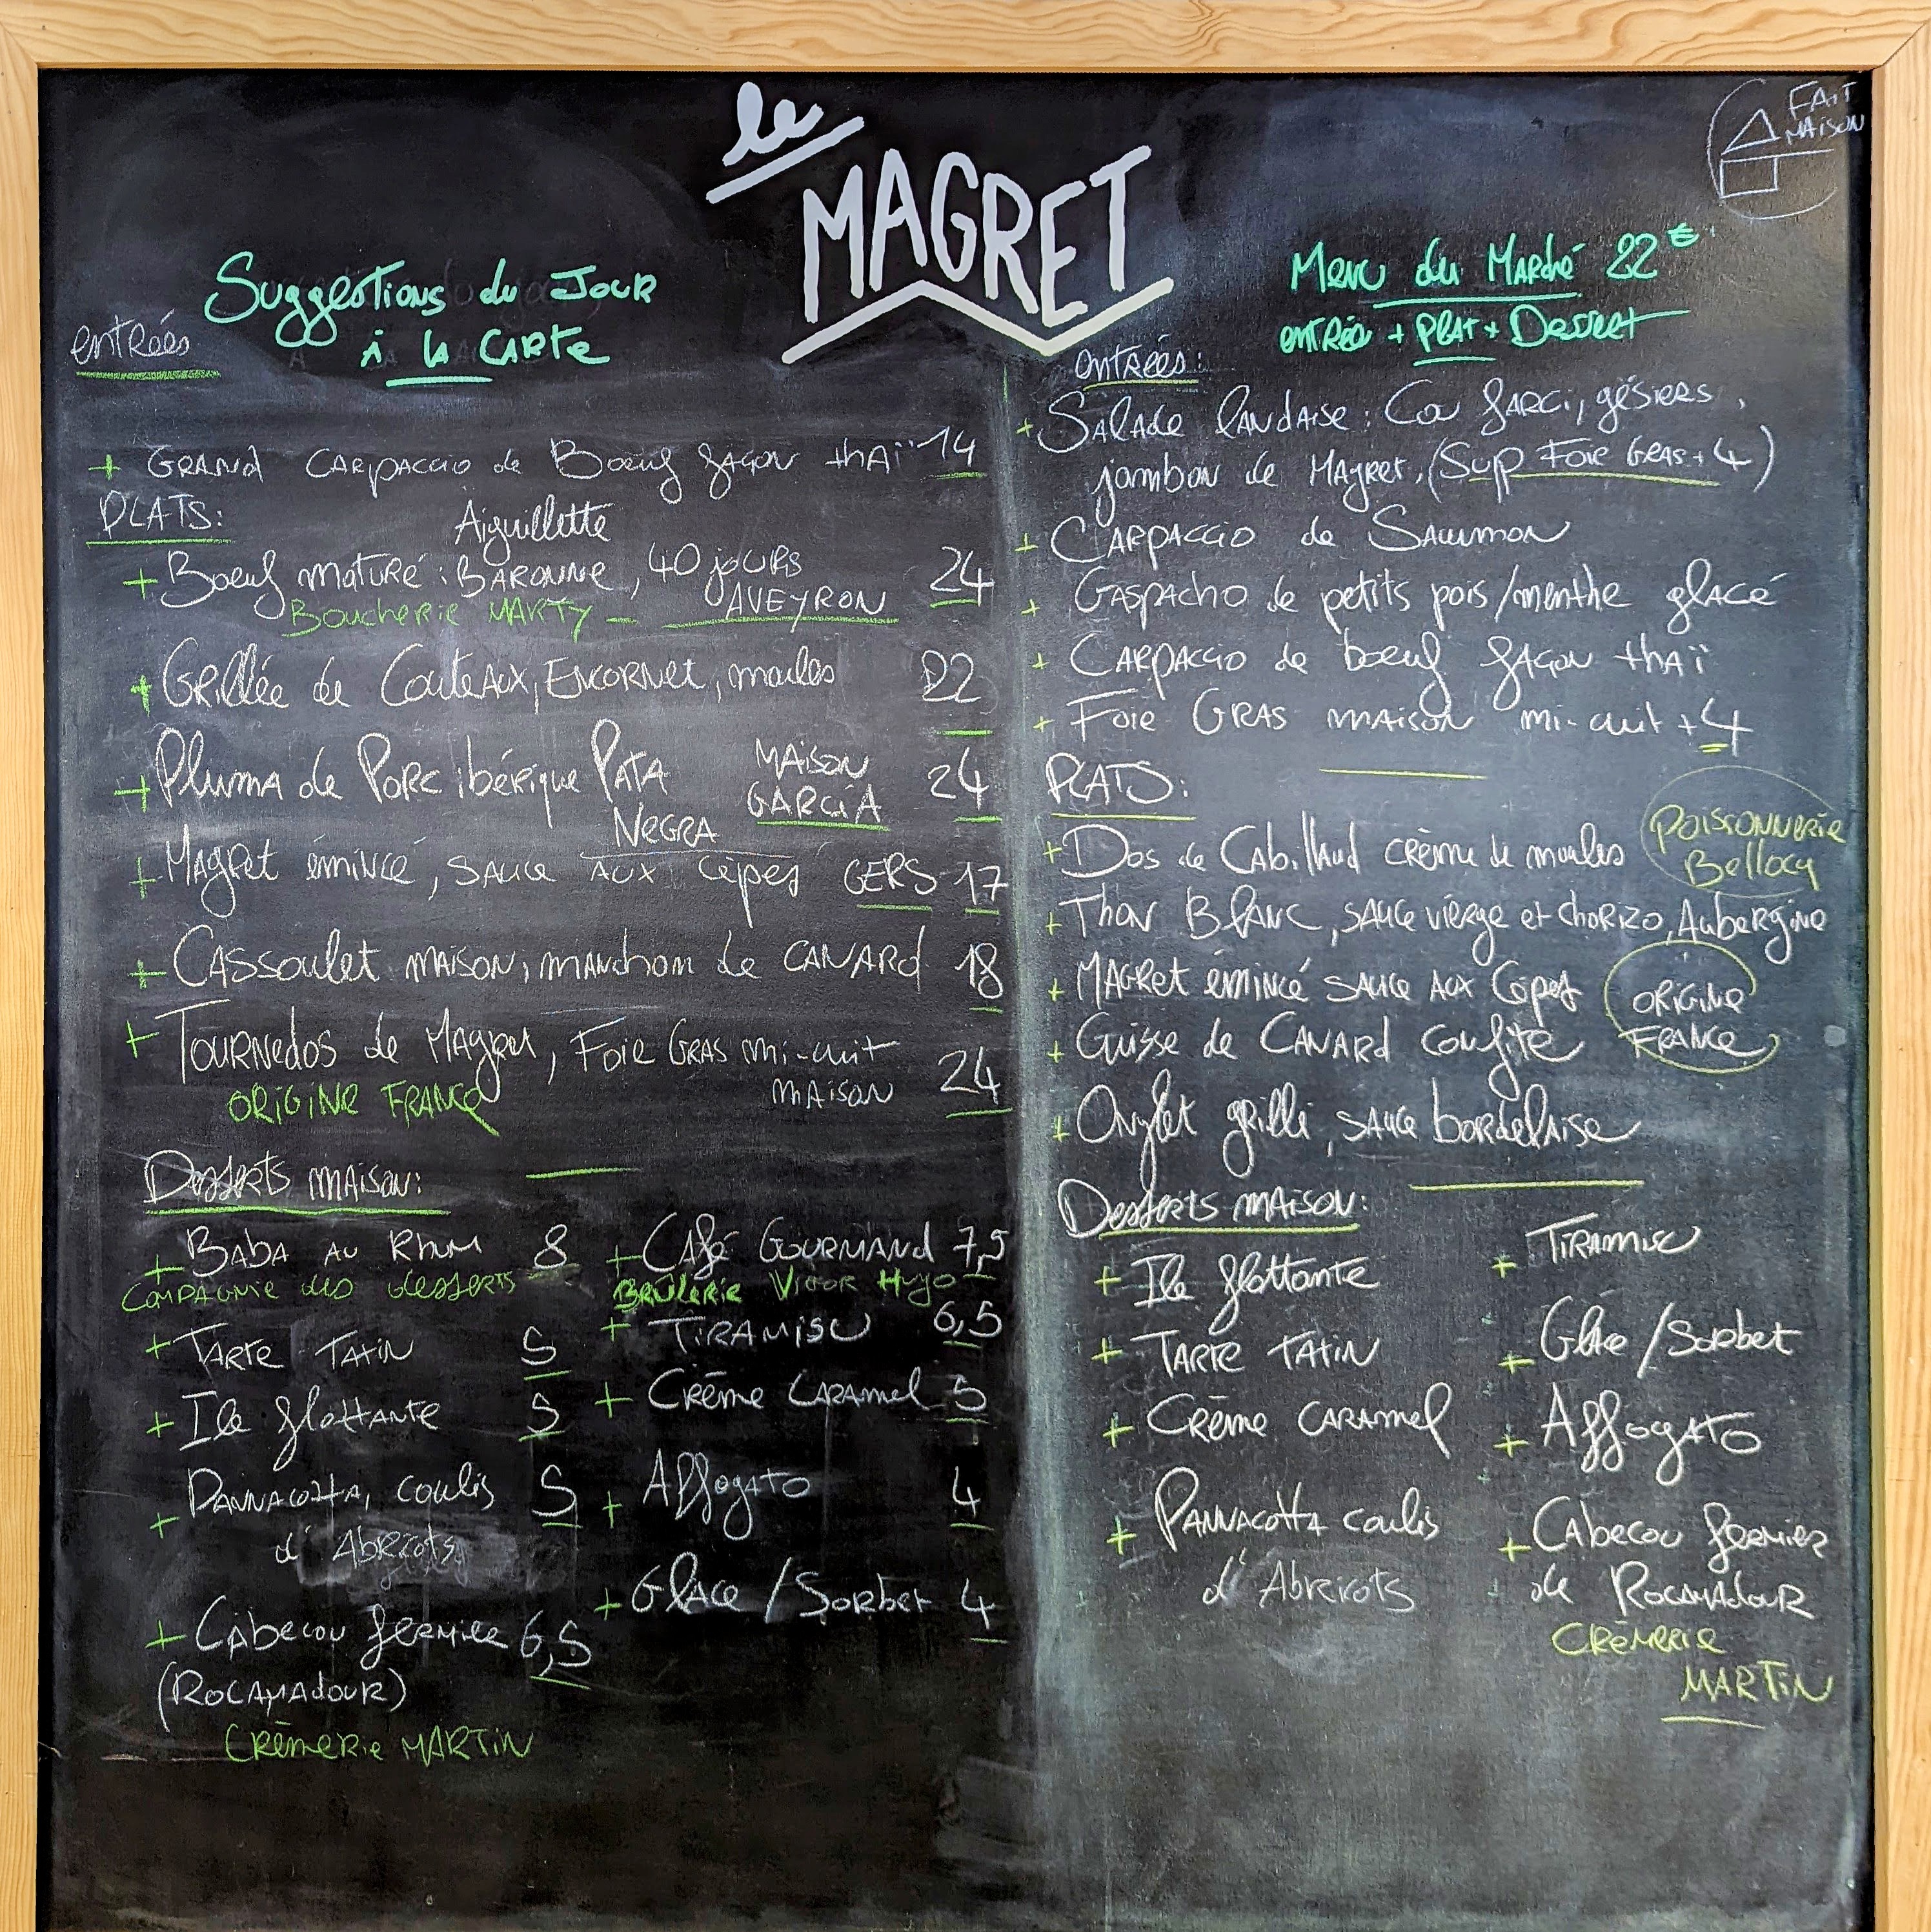 le
MAGRET
FAIT
MAISON
Suggestions du Jour
à la Carte
entrées
+ Grand Carpaccio de Boeuf façon thaï 14
PLATS:
Aiguillette
+ Boeuf maturé : Baronne, 40 jours 24
Boucherie MARTY - AVEYRON
+ Grillée de Couteaux, Encornet, moules 22
+ Pluma de Porc ibérique Pata Negra MAISON GARCIA 24
+ Magret émincé, sauce aux cèpes GERS 17
+ Cassoulet maison, manchon de canard 18
+ Tournedos de Magret, Foie Gras mi-cuit maison 24
ORIGINE FRANCE
Desserts maison:
+ Baba au Rhum 8
Compagnie des desserts
+ Tarte Tatin 5
+ Ile flottante 5
+ Pannacotta, coulis 5
d'Abricots
+ Cabecou fermier 6,5
(Rocamadour)
Crèmerie MARTIN
+ Café Gourmand 7,5
Brûlerie Victor Hugo
+ Tiramisu 6,5
+ Crème Caramel 5
+ Affogato 4
+ Glace / Sorbet 4
Menu du Marché 22€
entrée + Plat + Dessert
entrées:
+ Salade landaise : Cou farci, gésiers,
jambon de Magret, (Sup Foie Gras + 4)
+ Carpaccio de Saumon
+ Gaspacho de petits pois/menthe glacé
+ Carpaccio de boeuf façon thaï
+ Foie Gras maison mi-cuit + 4
PLATS:
+ Dos de Cabillaud crème de moules
POISSONNERIE
Bellocq
+ Thon Blanc, sauce vierge et chorizo, Aubergine
+ Magret émincé sauce aux Cèpes
+ Cuisse de Canard confite
ORIGINE
FRANCE
+ Onglet grillé, sauce bordelaise
Desserts maison:
+ Ile flottante
+ Tarte Tatin
+ Crème Caramel
+ Pannacotta coulis
d'Abricots
+ Tiramisu
+ Glace / Sorbet
+ Affogato
+ Cabecou fermier
de Rocamadour
Crèmerie
MARTIN